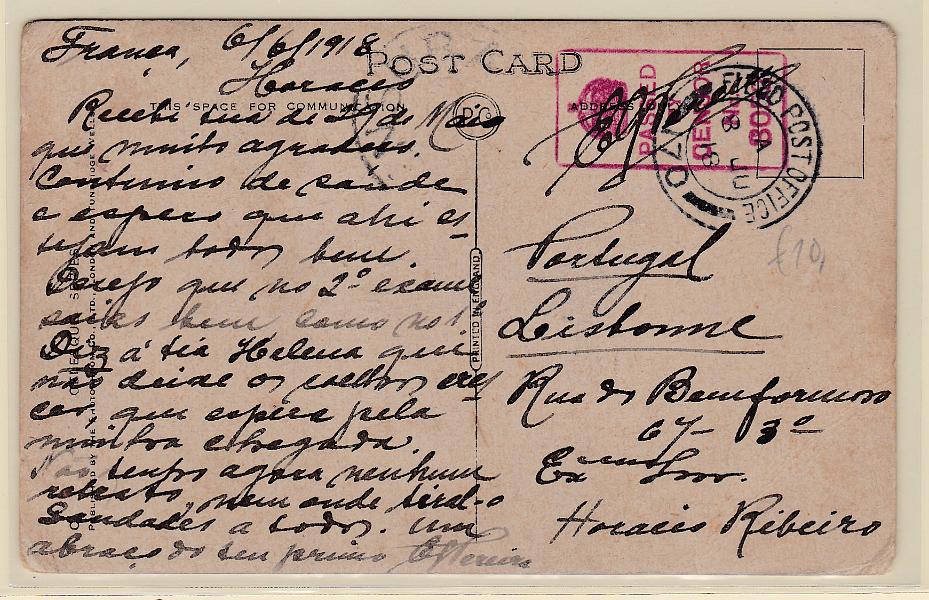 França, 6/6/1918
Horacio
POST CARD
THIS SPACE FOR COMMUNICATION
ADDRESS ONLY
Recebi tua de 27 de Maio
que muito agradeço.
Continuo de saude
e espero que ahi es-
tejam todos bem.
Desejo que no 2º exame
saias bem como no 1º
Diz á tia Helena que
não deixe os coelhos cres-
cer, que espere pela
minha chegada.
Não tenho agora nenhum
retrato, nem onde tiral-o
Saudades a todos. Um
abraço do teu primo
PASSED
BY
CENSOR
No
BOA
FIELD POST OFFICE
8 JU
18
Portugal
Lisbonne
Rua do Bemformoso
67- 3º
Exmo Snr.
Horacio Ribeiro
£10,
PRINTED IN ENGLAND